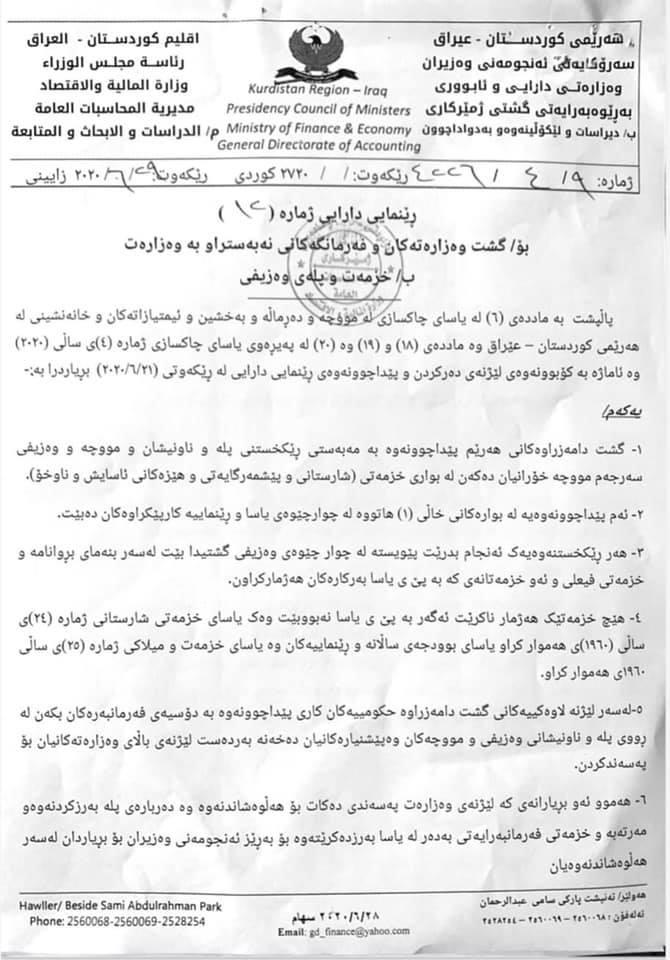 هەرێمی کوردستان - عیراق
سەرۆکایەتی ئەنجومەنی وەزیران
وەزارەتی دارایی و ئابووری
بەڕێوەبەرایەتی گشتی ژمێرکاری
ب/ دیراسات و لێکۆڵینەوەو بەدواداچوون
Kurdistan Region – Iraq
Presidency Council of Ministers
Ministry of Finance & Economy
General Directorate of Accounting
اقليم كوردستان - العراق
رئاسة مجلس الوزراء
وزارة المالية والاقتصاد
مديرية المحاسبات العامة
م/ الدراسات و الابحاث و المتابعة
ژمارە: ٤/٩ / رێکەوت: / / ٢٧٢٠ کوردی رێکەوت: ٢٩/٦/٢٠٢٠ زایینی
رێنمایی دارایی ژمارە (١٢)
بۆ/ گشت وەزارەتەکان و فەرمانگەکانی نەبەستراو بە وەزارەت
ب/ خزمەت و پلەی وەزیفی
پاڵپشت بە ماددەی (٦) لە یاسای چاکسازی لە مووچە و دەرماڵە و بەخشین و ئیمتیازاتەکان و خانەنشینی لە
هەرێمی کوردستان – عێراق وە ماددەی (١٨) و (١٩) وە (٢٠) لە پەیڕەوی یاسای چاکسازی ژمارە (٤)ی ساڵی (٢٠٢٠)
وە ئاماژە بە کۆبوونەوەی لێژنەی دەرکردن و پێداچوونەوەی رێنمایی دارایی لە رێکەوتی (٢٠٢٠/٦/٢١) بڕیاردرا بە:-
یەکەم/
١- گشت دامەزراوەکانی هەرێم پێداچوونەوە بە مەبەستی رێکخستنی پلە و ناونیشان و مووچە و وەزیفی
سەرجەم مووچە خۆرانیان دەکەن لە بواری خزمەتی (شارستانی و پێشمەرگایەتی و هێزەکانی ئاسایش و ناوخۆ).
٢- ئەم پێداچوونەوەیە لە بوارەکانی خاڵی (١) هاتووە لە چوارچێوەی یاسا و رێنماییە کارپێکراوەکان دەبێت.
٣- هەر رێکخستنەوەیەک ئەنجام بدرێت پێویستە لە چوار چێوەی وەزیفی گشتیدا بێت لەسەر بنەمای بڕوانامە و
خزمەتی فیعلی و ئەو خزمەتانەی کە بە پێ ی یاسا بەرکارەکان هەژمارکراون.
٤- هیچ خزمەتێک هەژمار ناکرێت ئەگەر بە پێ ی یاسا نەبووبێت وەک یاسای خزمەتی شارستانی ژمارە (٢٤)ی
ساڵی (١٩٦٠)ی هەموار کراو یاسای بوودجەی ساڵانە و رێنماییەکان وە یاسای خزمەت و میلاکی ژمارە (٢٥)ی ساڵی
١٩٦٠ی هەموار کراو.
٥-لەسەر لێژنە لاوەکییەکانی گشت دامەزراوە حکومییەکان کاری پێداچوونەوە بە دۆسیەی فەرمانبەرەکان بکەن لە
رووی پلە و ناونیشانی وەزیفی و مووچەکان وەپێشنیارەکانیان دەخەنە بەردەست لێژنەی باڵای وەزارەتەکانیان بۆ
پەسەندکردن.
٦- هەموو ئەو بڕیارانەی کە لێژنەی وەزارەت پەسەندی دەکات بۆ هەڵوەشاندنەوە وە دەربارەی پلە بەرزکردنەوەو
مەرتەبە و خزمەتی فەرمانبەرایەتی بەدەر لە یاسا بەرزدەکرێتەوە بۆ بەڕێز ئەنجومەنی وەزیران بۆ بڕیاردان لەسەر
هەڵوەشاندنەوەیان
Hawller/ Beside Sami Abdulrahman Park
Phone: 2560068-2560069-2528254
٢٠٢٠/٦/٢٨ سهام
Email: gd_finance@yahoo.com
هەولێر/ تەنیشت پارکی سامی عبدالرحمان
تەلەفۆن: ٢٥٦٠٠٦٨ – ٢٥٦٠٠٦٩ – ٢٥٢٨٢٥٤